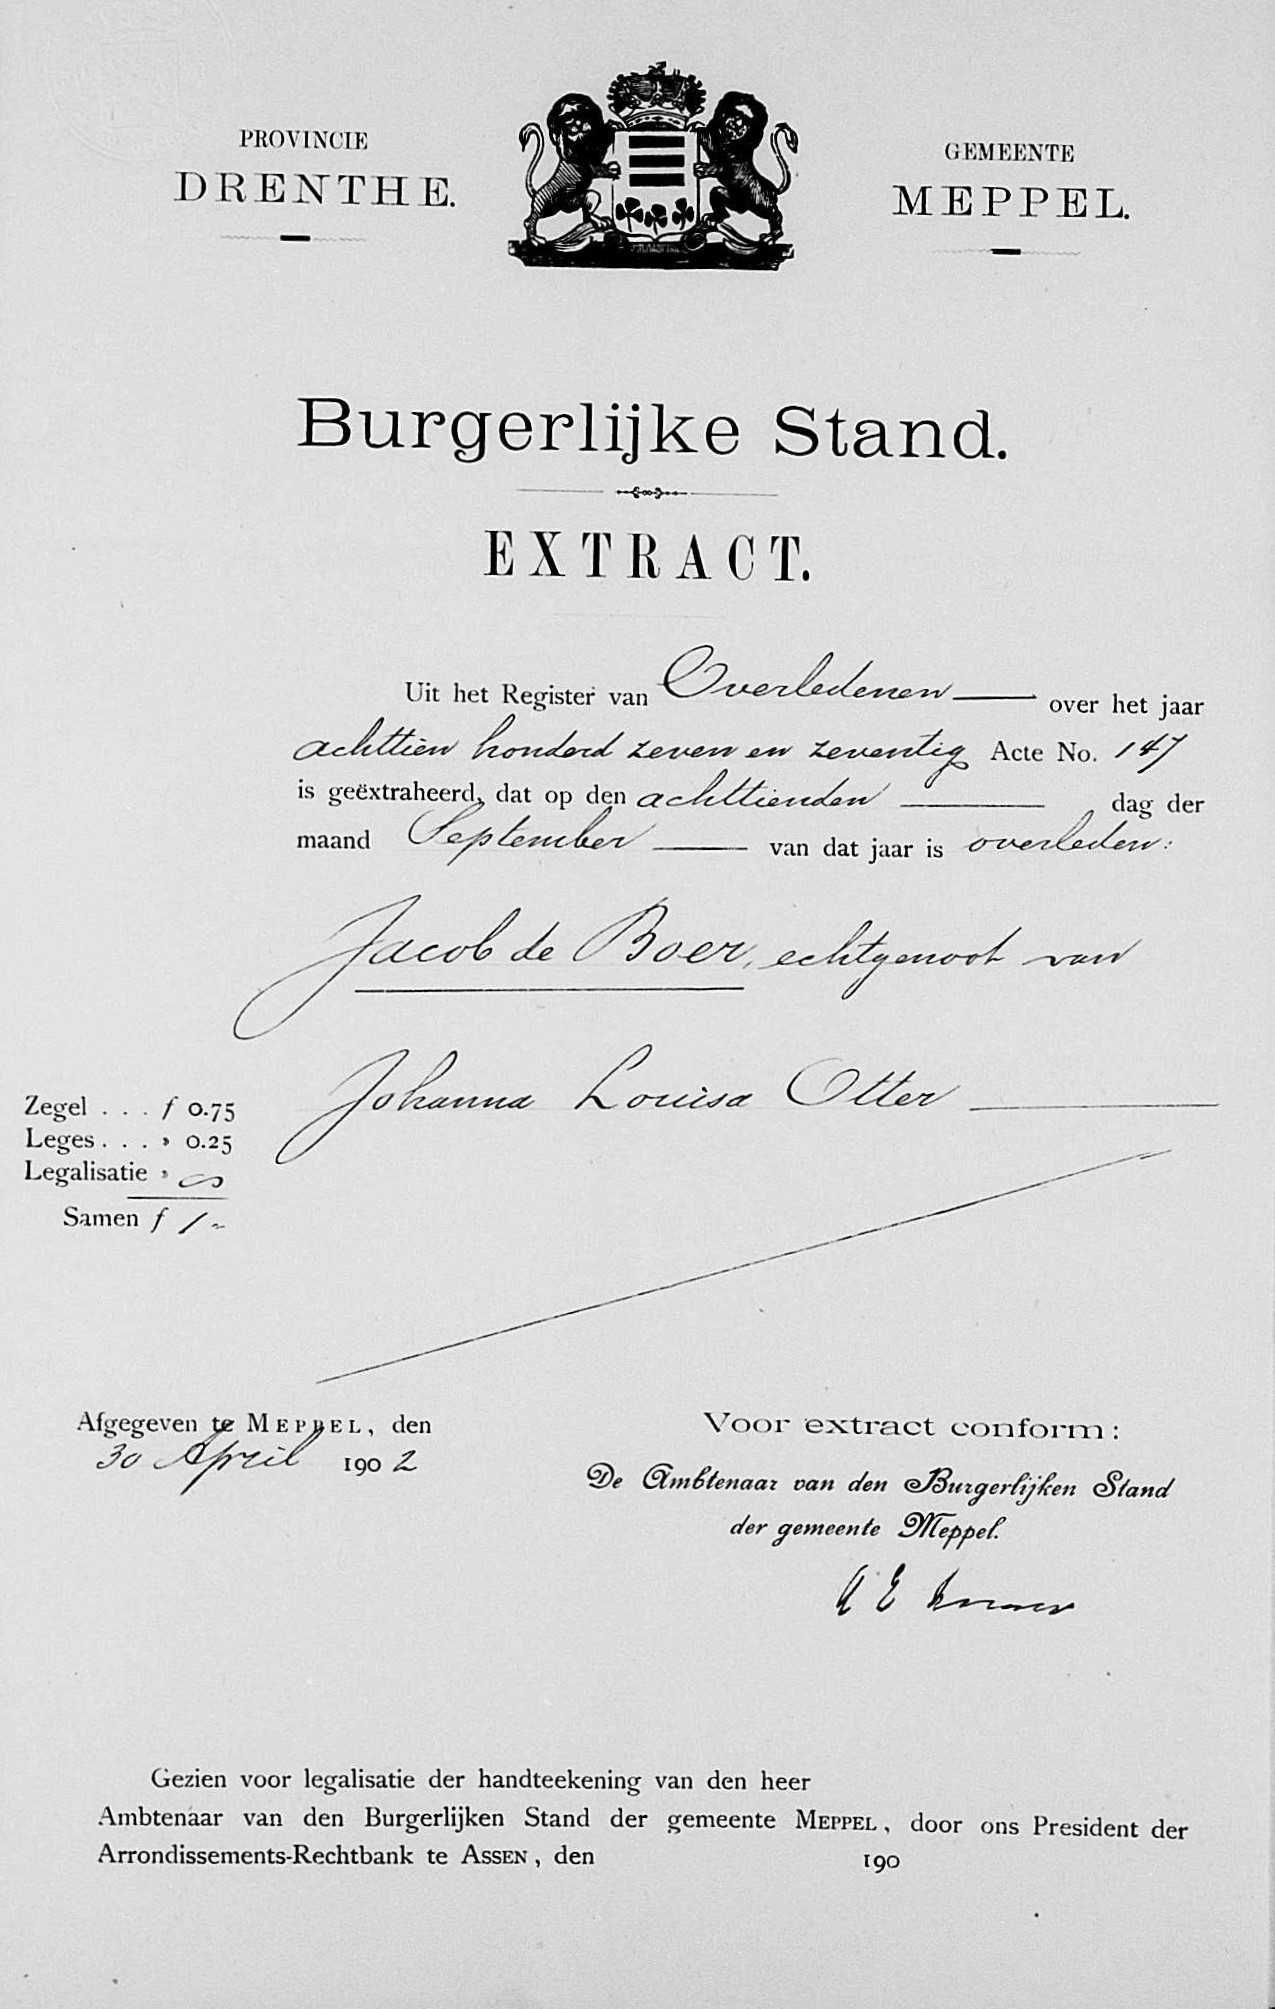 PROVINCIE
DRENTHE.
GEMEENTE
MEPPEL.
Burgerlijke Stand.
EXTRACT.
Uit het Register van Overledenen over het jaar
achttien honderd zeven en zeventig Acte No. 147
is geëxtraheerd, dat op den achttienden dag der
maand September van dat jaar is overleden:
Jacob de Boer, echtgenoot van
Johanna Louisa Otter
Zegel . . . f 0.75
Leges . . . » 0.25
Legalisatie »
Samen f 1 "
Afgegeven te MEPPEL, den
30 April 1902
Voor extract conform:
De Ambtenaar van den Burgerlijken Stand
der gemeente Meppel.
Gezien voor legalisatie der handteekening van den heer
Ambtenaar van den Burgerlijken Stand der gemeente MEPPEL, door ons President der
Arrondissements-Rechtbank te ASSEN, den 190